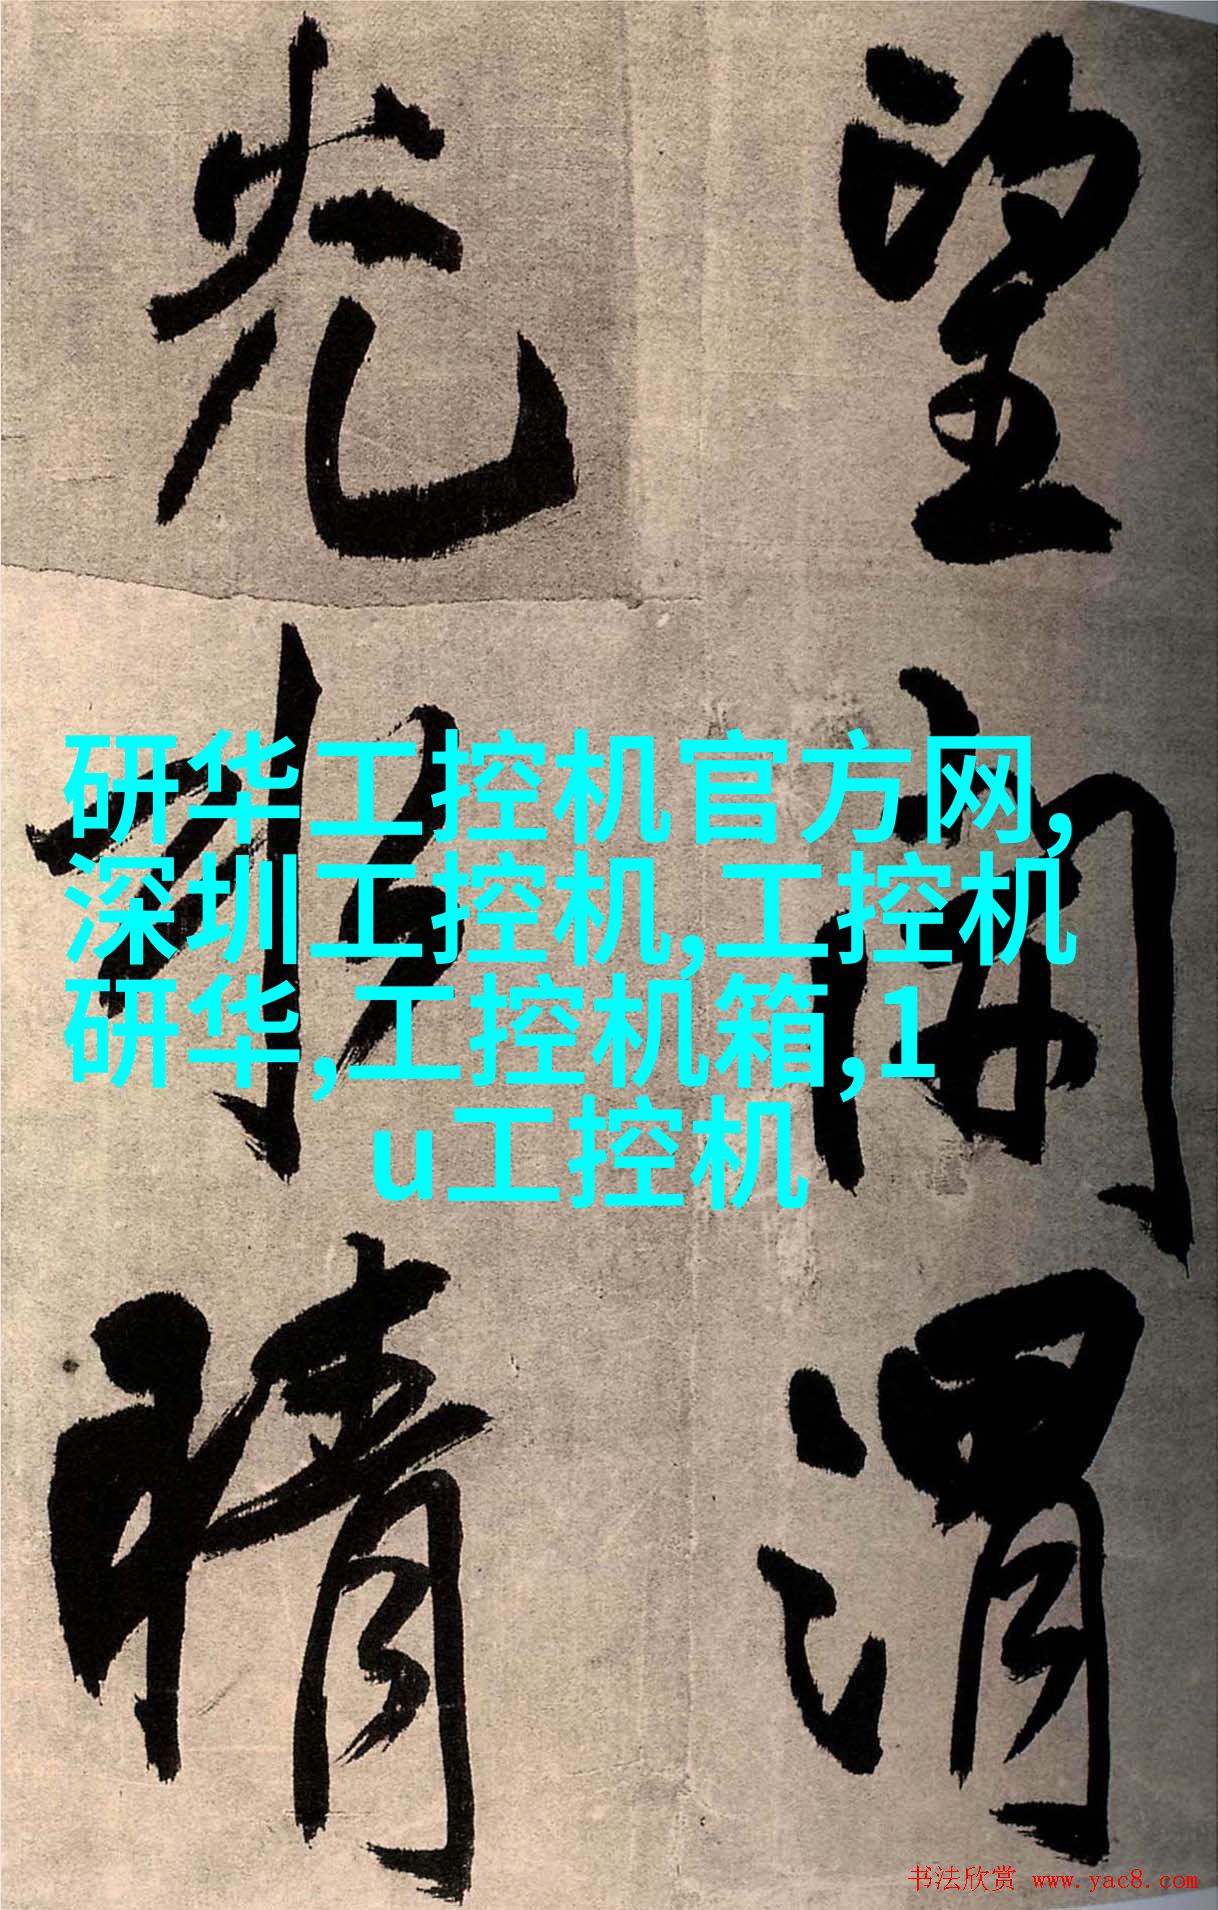 望開渭
光
晴
研华工控机官方网,
深圳工控机,工控机
研华,工控机箱,1
u工控机
书法欣赏 www.yac8.com